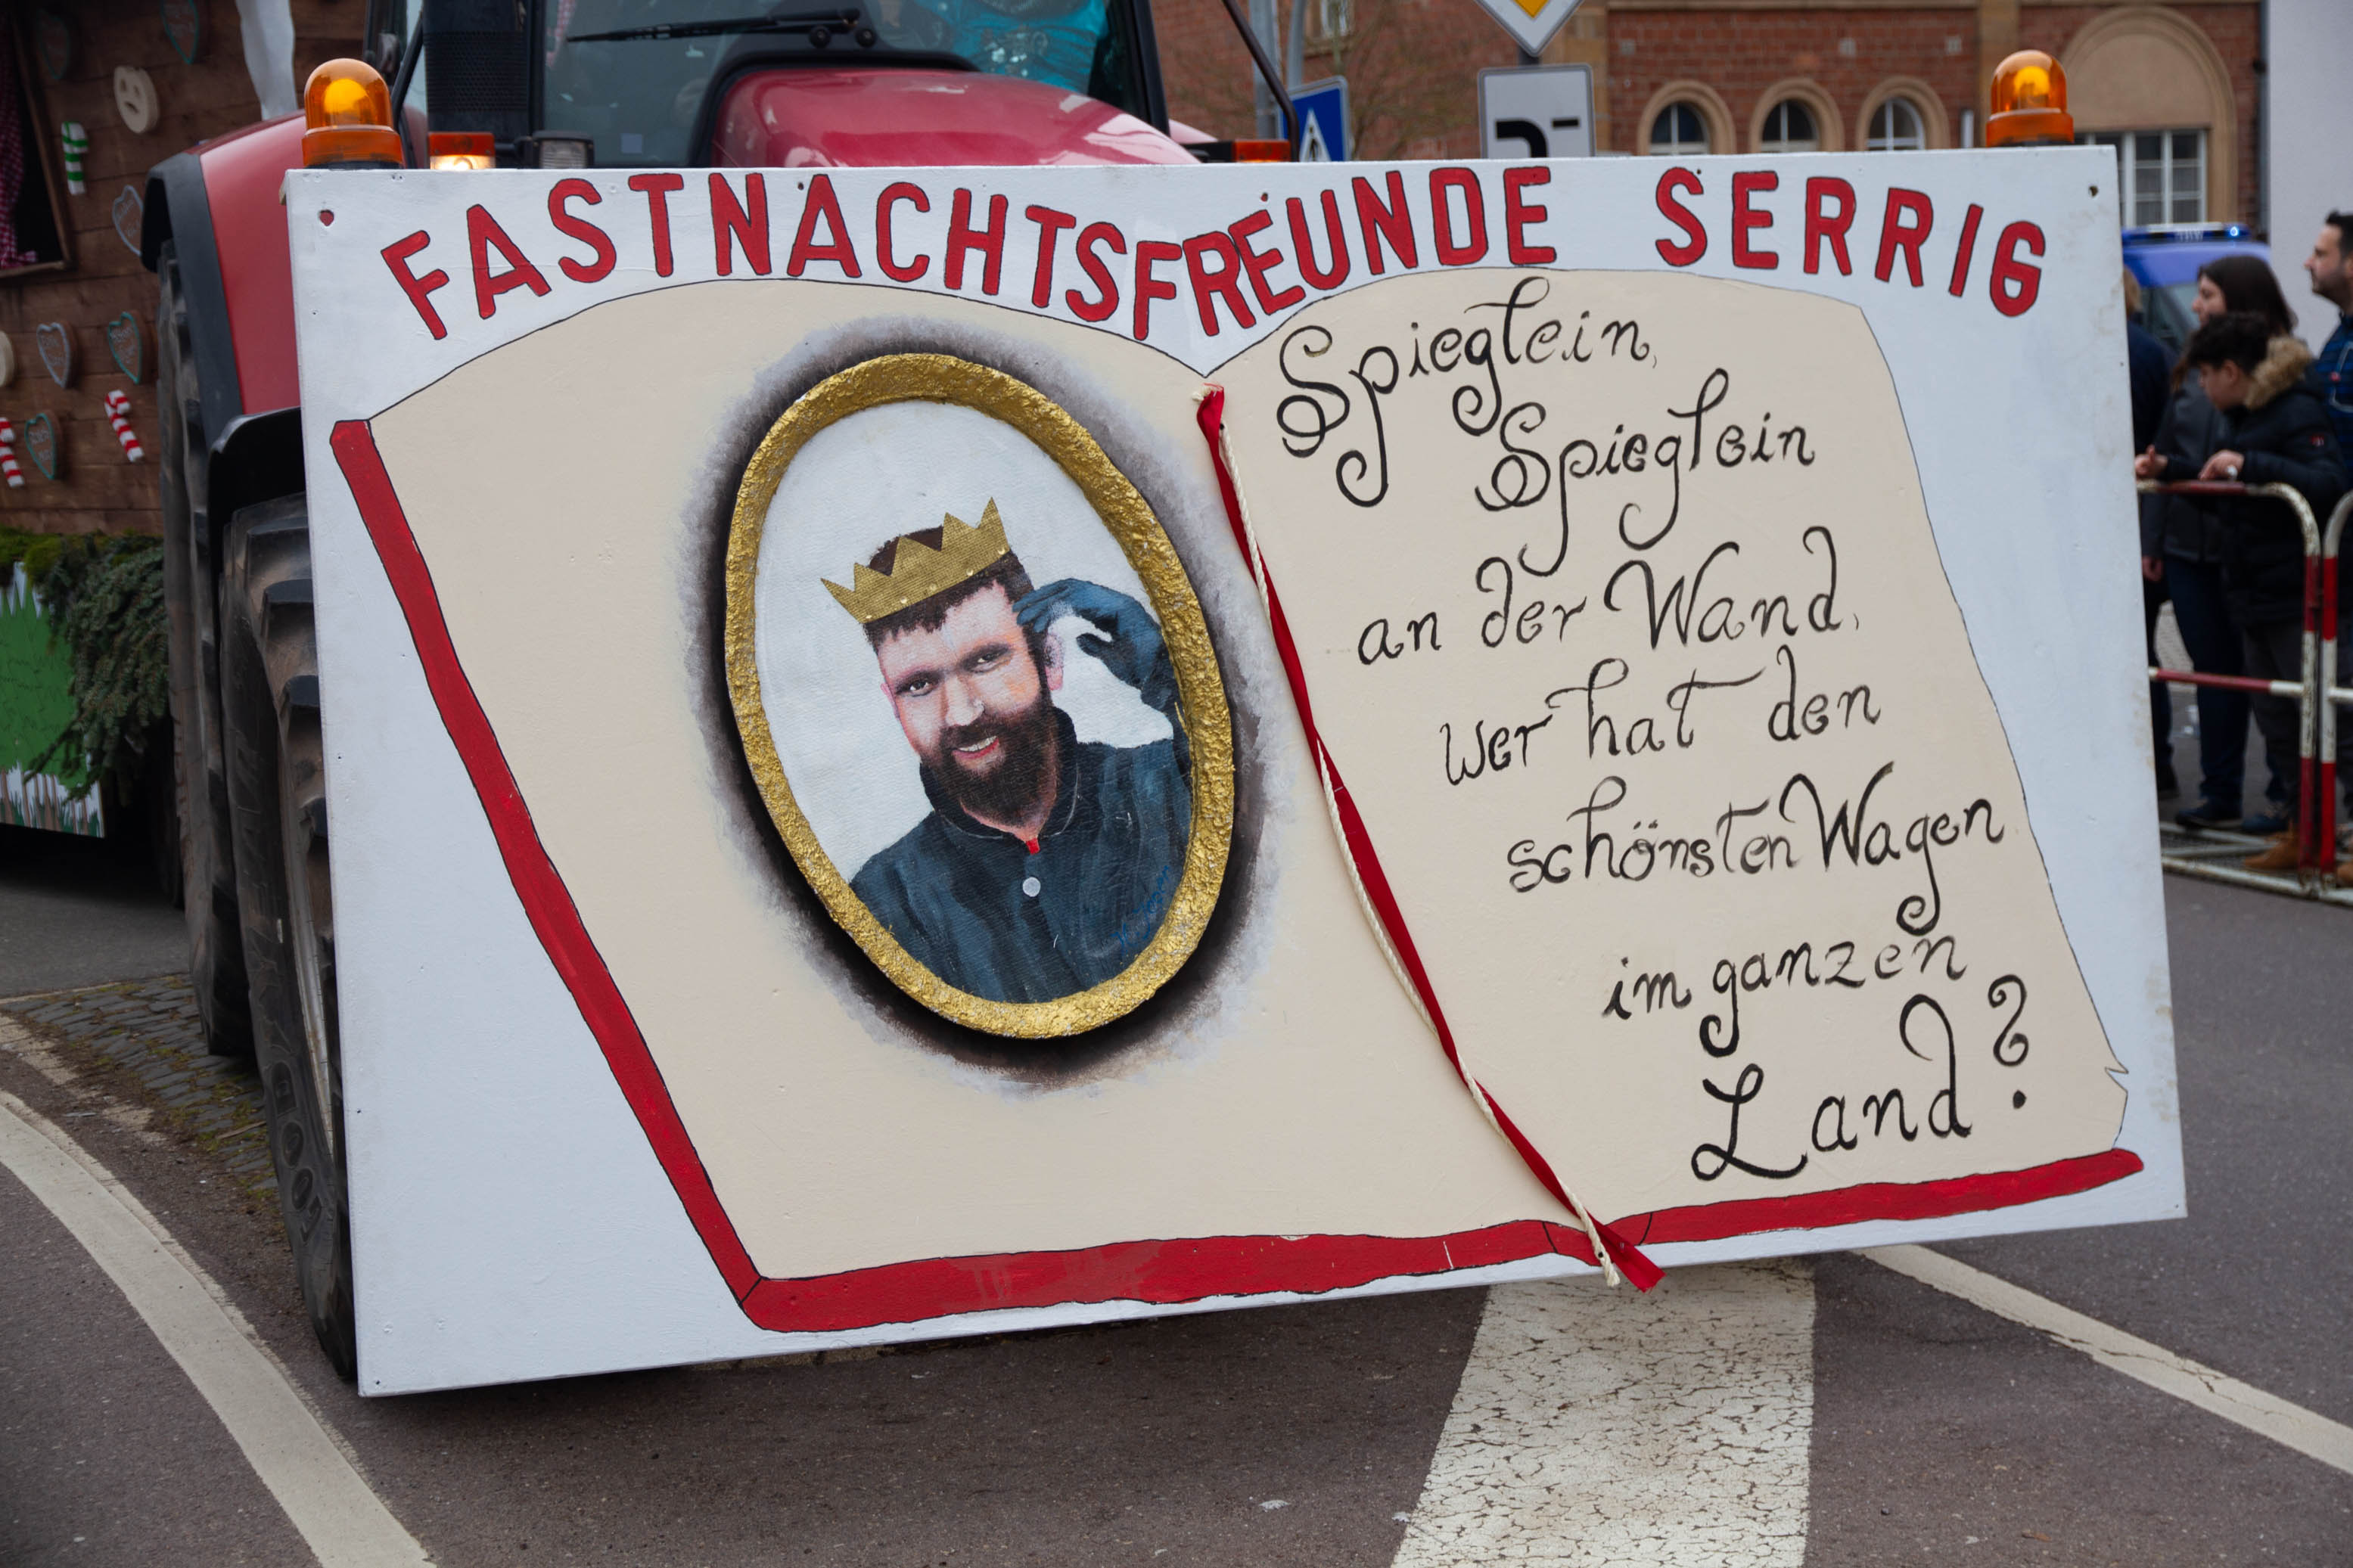 FASTNACHTSFREUNDE SERRIG
Spieglein,
Spieglein
an der Wand,
wer hat den
schönsten Wagen
im ganzen
Land?